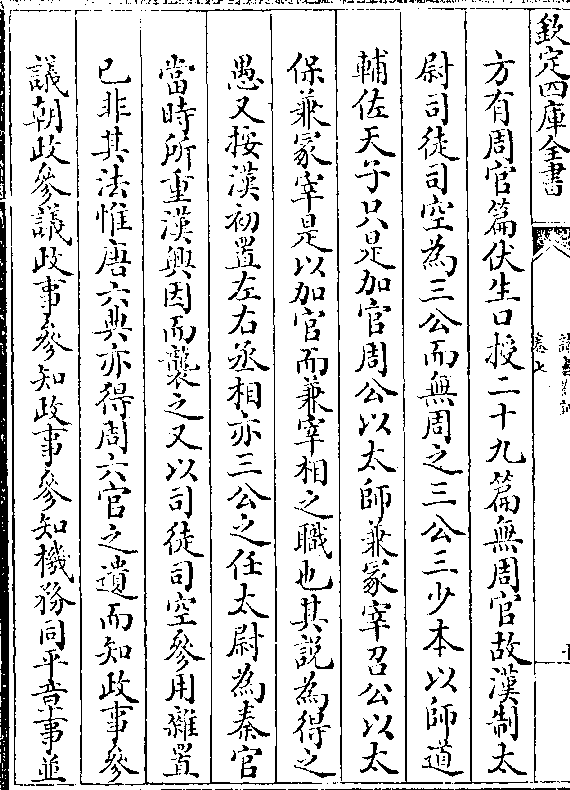 欽定四庫全書
卷七
方有周官篇伏生口授二十九篇無周官故漢制太
尉司徒司空為三公而無周之三公三少本以師道
輔佐天子只是加官周公以太師兼冢宰召公以太
保兼冢宰是以加官而兼宰相之職也其説為得之
愚又按漢初置左右丞相亦三公之任太尉為秦官
當時所重漢興因而襲之又以司徒司空參用雜置
已非其法惟唐六典亦得周六官之遺而知政事參
議朝政參議政事參知政事參知機務同平章事並